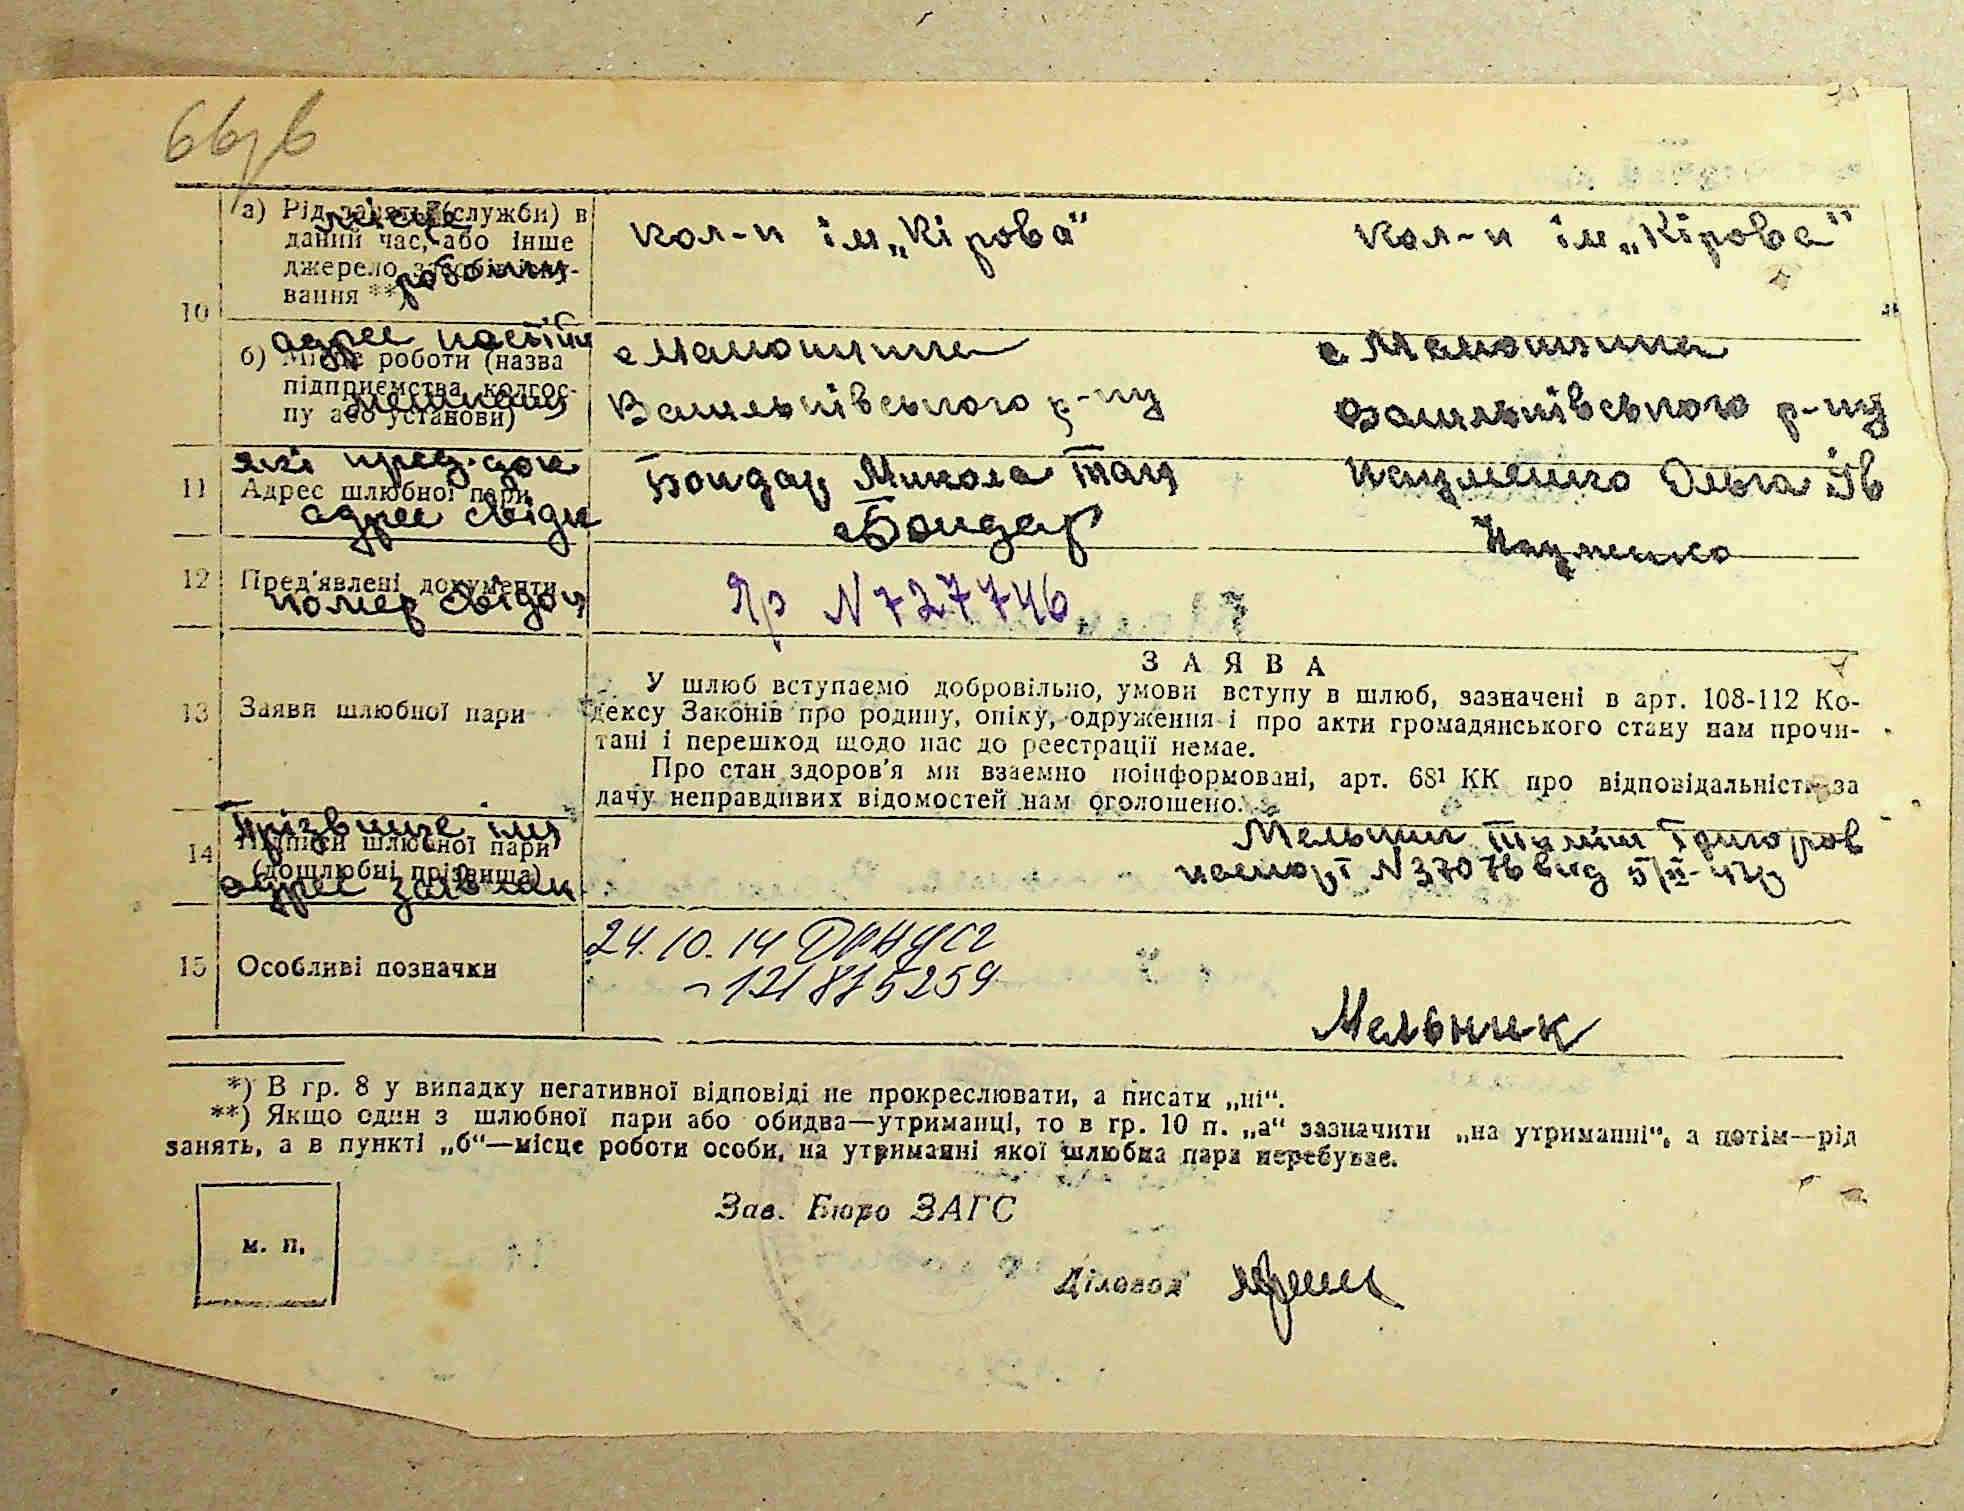 10
а) Рід занять (служби) в
даний час, або інше
джерело засобів існу-
вання **)
місце
роботи
кол-п ім „Кірова"
кол-п ім „Кірова"
б) Місце роботи (назва
підприємства, колгос-
пу або установи)
адрес
с
Васильківського р-ну
с
Васильківського р-ну
11 Адрес шлюбної пари
які пред. док
адрес свідк
Бондар Микола
Бондар
Науменко Ольга Ів
Науменко
12 Пред'явлені документи
номер свідоц
Яр N 727746
13 Заяви шлюбної пари
ЗАЯВА
У шлюб вступаємо добровільно, умови вступу в шлюб, зазначені в арт. 108-112 Ко-
дексу Законів про родину, опіку, одруження і про акти громадянського стану нам прочи-
тані і перешкод щодо нас до реєстрації немає.
Про стан здоров'я ми взаємно поінформовані, арт. 68¹ КК про відповідальність за
дачу неправдивих відомостей нам оголошено.
14 Підписи шлюбної пари
(дошлюбні прізвища)
Прізвище імя
адрес заявник
Мельник Григоров
паспорт N 37076 вид
15 Особливі позначки
24.10.14
Мельник
*) В гр. 8 у випадку негативної відповіді не прокреслювати, а писати „ні“.
**) Якщо один з шлюбної пари або обидва—утриманці, то в гр. 10 п. „а“ зазначити „на утриманні“, а потім—рід
занять, а в пункті „б“—місце роботи особи, на утриманні якої шлюбна пара перебуває.
Зав. Бюро ЗАГС
м. п.
Діловод